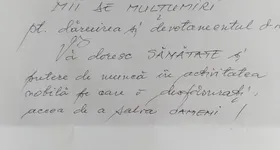 MII DE MULȚUMIRI
pt. dăruirea și devotamentul
Vă doresc SĂNĂTATE și
putere de muncă în activitatea
nobilă pe care o desfășurați,
aceea de a salva OAMENI !